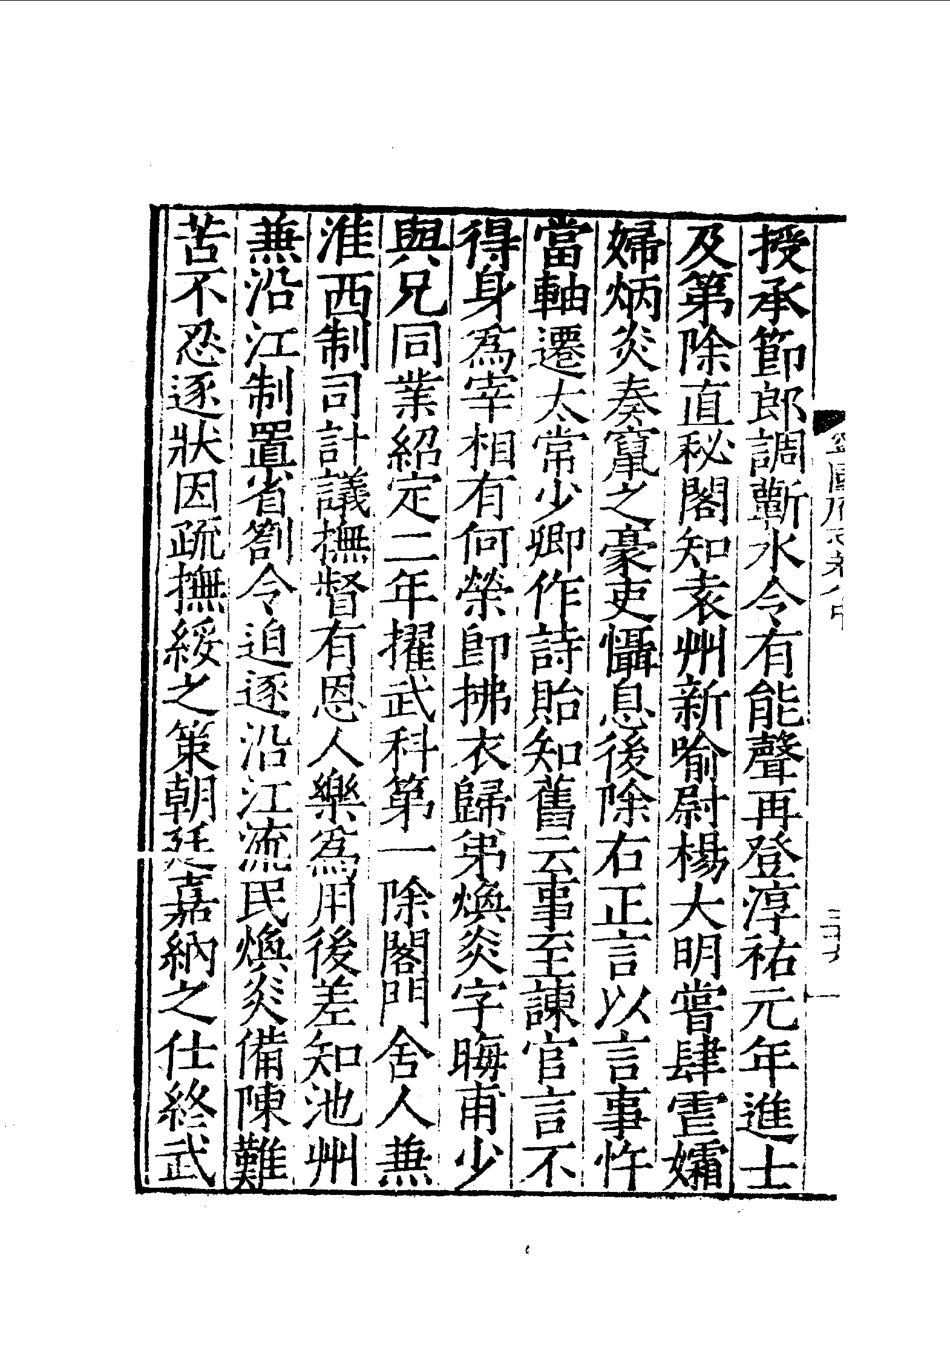 授承節郎調蘄水令有能聲再登淳祐元年進士
及第除直秘閣知袁州新喻尉楊大明嘗肆虐孀
婦炳炎奏竄之豪吏懾息後除右正言以言事忤
當軸遷太常少卿作詩貽知舊云事至諫官言不
得身爲宰相有何榮卽拂衣歸弟煥炎字晦甫少
與兄同業紹定二年擢武科第一除閣門舍人兼
淮西制司計議撫督有恩人樂爲用後差知池州
兼沿江制置省劄令迫逐沿江流民煥炎備陳難
苦不忍逐狀因疏撫綏之策朝廷嘉納之仕終武